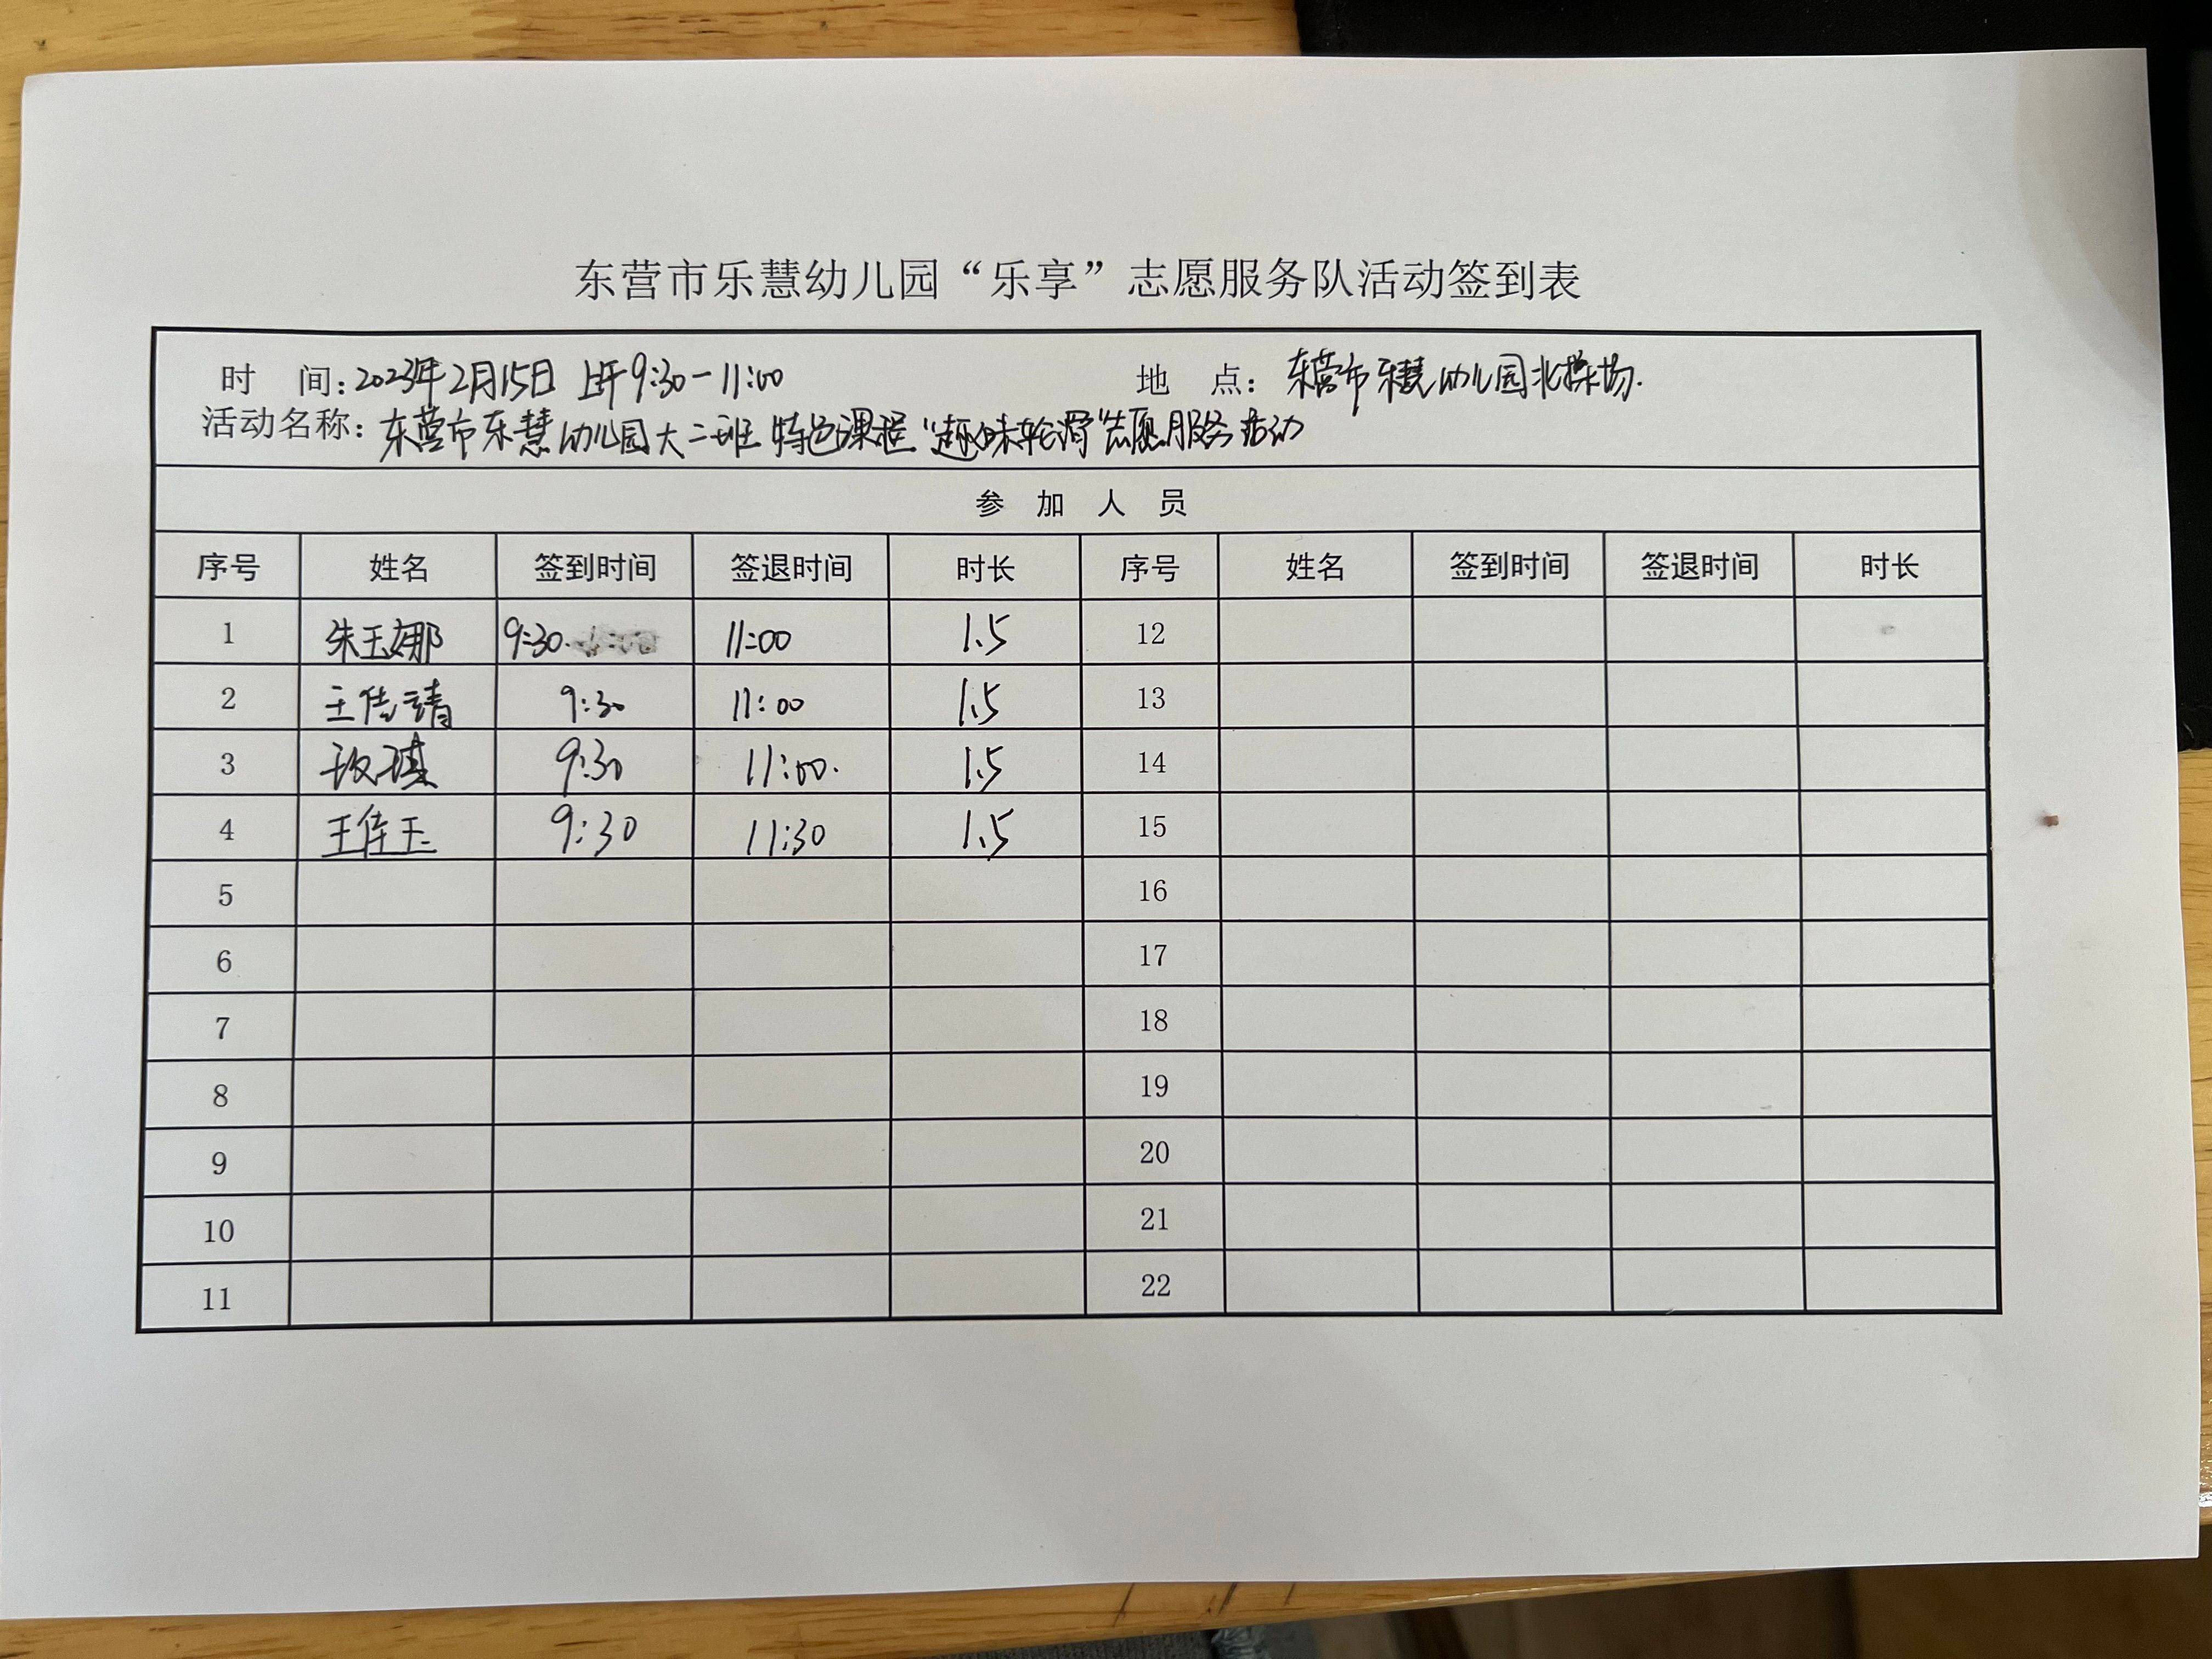 东营市乐慧幼儿园“乐享”志愿服务队活动签到表
时 间：2023年2月15日 上午9:30-11:00 地 点：东营市乐慧幼儿园北操场.
活动名称：东营市乐慧幼儿园大二班 特色课程“趣味轮滑”志愿服务活动
参 加 人 员
序号 姓名 签到时间 签退时间 时长 序号 姓名 签到时间 签退时间 时长
1 朱玉娜 9:30. 11:00 1.5 12
2 王传靖 9:30 11:00 1.5 13
3 9:30 11:00. 1.5 14
4 王佳玉 9:30 11:30 1.5 15
5 16
6 17
7 18
8 19
9 20
10 21
11 22